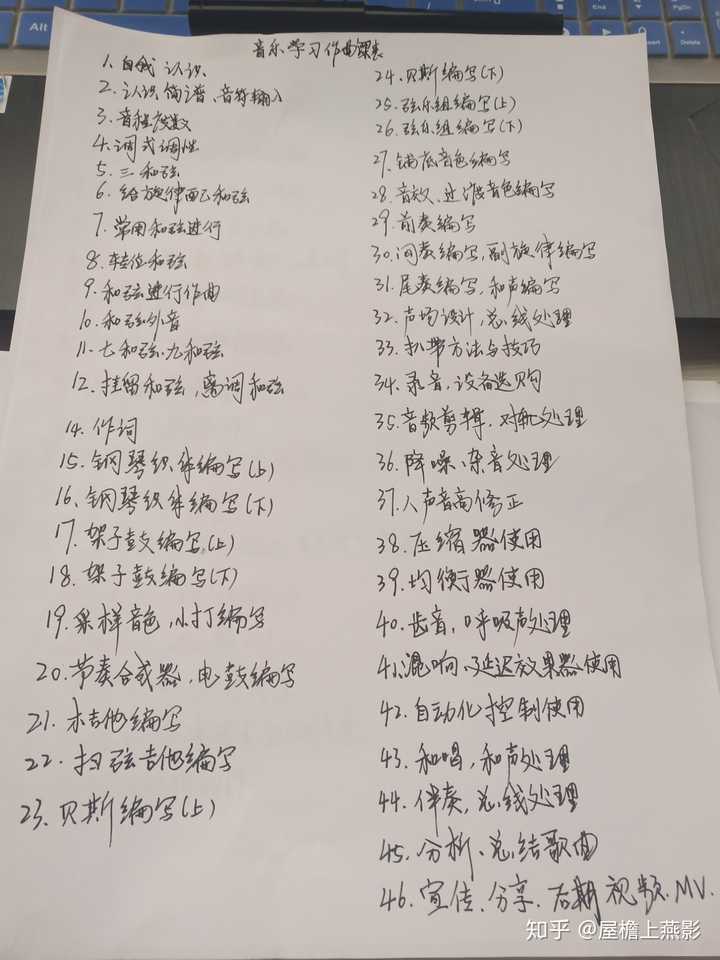 音乐学习作曲课表
1. 自我认识
2. 认识简谱、音符输入
3. 音程度数
4. 调式调性
5. 三和弦
6. 给旋律配和弦
7. 常用和弦进行
8. 转位和弦
9. 和弦进行作曲
10. 和弦外音
11. 七和弦、九和弦
12. 挂留和弦,离调和弦
14. 作词
15. 钢琴织体编写(上)
16. 钢琴织体编写(下)
17. 架子鼓编写(上)
18. 架子鼓编写(下)
19. 采样音色,小打编写
20. 节奏合成器,电鼓编写
21. 木吉他编写
22. 扫弦吉他编写
23. 贝斯编写(上)
24. 贝斯编写(下)
25. 弦乐组编写(上)
26. 弦乐组编写(下)
27. 铺底音色编写
28. 音效、过渡音色编写
29. 前奏编写
30. 间奏编写,副旋律编写
31. 尾奏编写,和声编写
32. 声场设计,总线处理
33. 扒带方法与技巧
34. 录音,设备选购
35. 音频剪辑,对轨处理
36. 降噪、杂音处理
37. 人声音高修正
38. 压缩器使用
39. 均衡器使用
40. 齿音,呼吸声处理
41. 混响、延迟效果器使用
42. 自动化控制使用
43. 和唱,和声处理
44. 伴奏,总线处理
45. 分析、总结歌曲
46. 宣传、分享、后期视频.MV.
知乎 @屋檐上燕影
Alt
PgDn
End